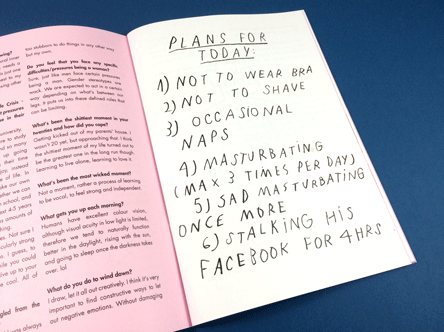 wing?
too stubborn to do things in any other way
but my own.
Do you feel that you face any specific
difficulties/pressures being a woman?
Sure, just like men face certain pressures
being a man. Gender stereotypes are
wack. We are expected to act in a certain
way depending on what's between our
legs it puts us into these defined roles that
can be limiting.
What's been the shittiest moment in your
twenties and how did you cope?
Getting kicked out of my parents' house. I
wasn't 20 yet, but approaching that. I think
the shittiest moment of my life turned out to
be the greatest one in the long run though.
Learning to live alone, learning to love it.
What's been the most wicked moment?
Not a moment, rather a process of learning
to be vocal, to feel strong and independent.
What gets you up each morning?
Humans have excellent colour vision,
although visual acuity in low light is limited,
therefore we tend to naturally function
better in the daylight, rising with the sun,
and going to sleep once the darkness takes
over. lol
What do you do to wind down?
I draw, let it all out creatively. I think it's very
important to find constructive ways to let
out negative emotions. Without damaging
PLANS FOR
TODAY:
1) NOT TO WEAR BRA
2) NOT TO SHAVE
3) OCCASIONAL
NAPS
4) MASTURBATING
(MAX 3 TIMES PER DAY)
5) SAD MASTURBATING
ONCE MORE
6) STALKING HIS
FACEBOOK FOR 4HRS